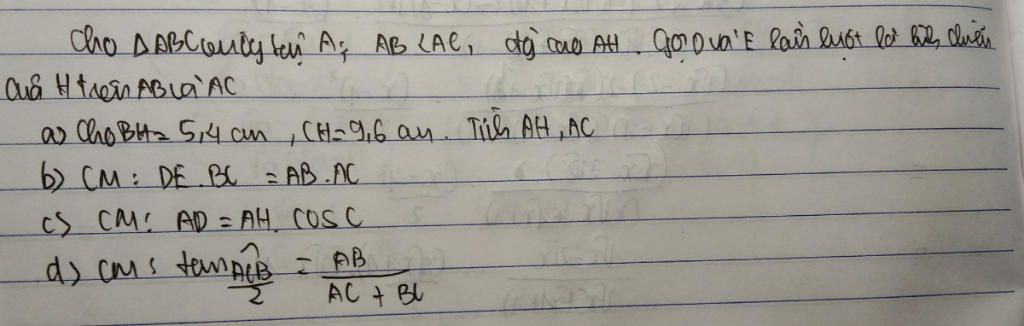 Cho ΔABC vuông tại A; AB < AC, đg cao AH. Gọi D và E lần lượt là hình chiếu
của H trên AB và AC
a) Cho BH = 5,4 cm, CH = 9,6 cm. Tính AH, AC
b) CM : DE . BC = AB . AC
c) CM : AD = AH . COS C
d) CM : tan \frac{\widehat{ACB}}{2} = \frac{AB}{AC + BC}